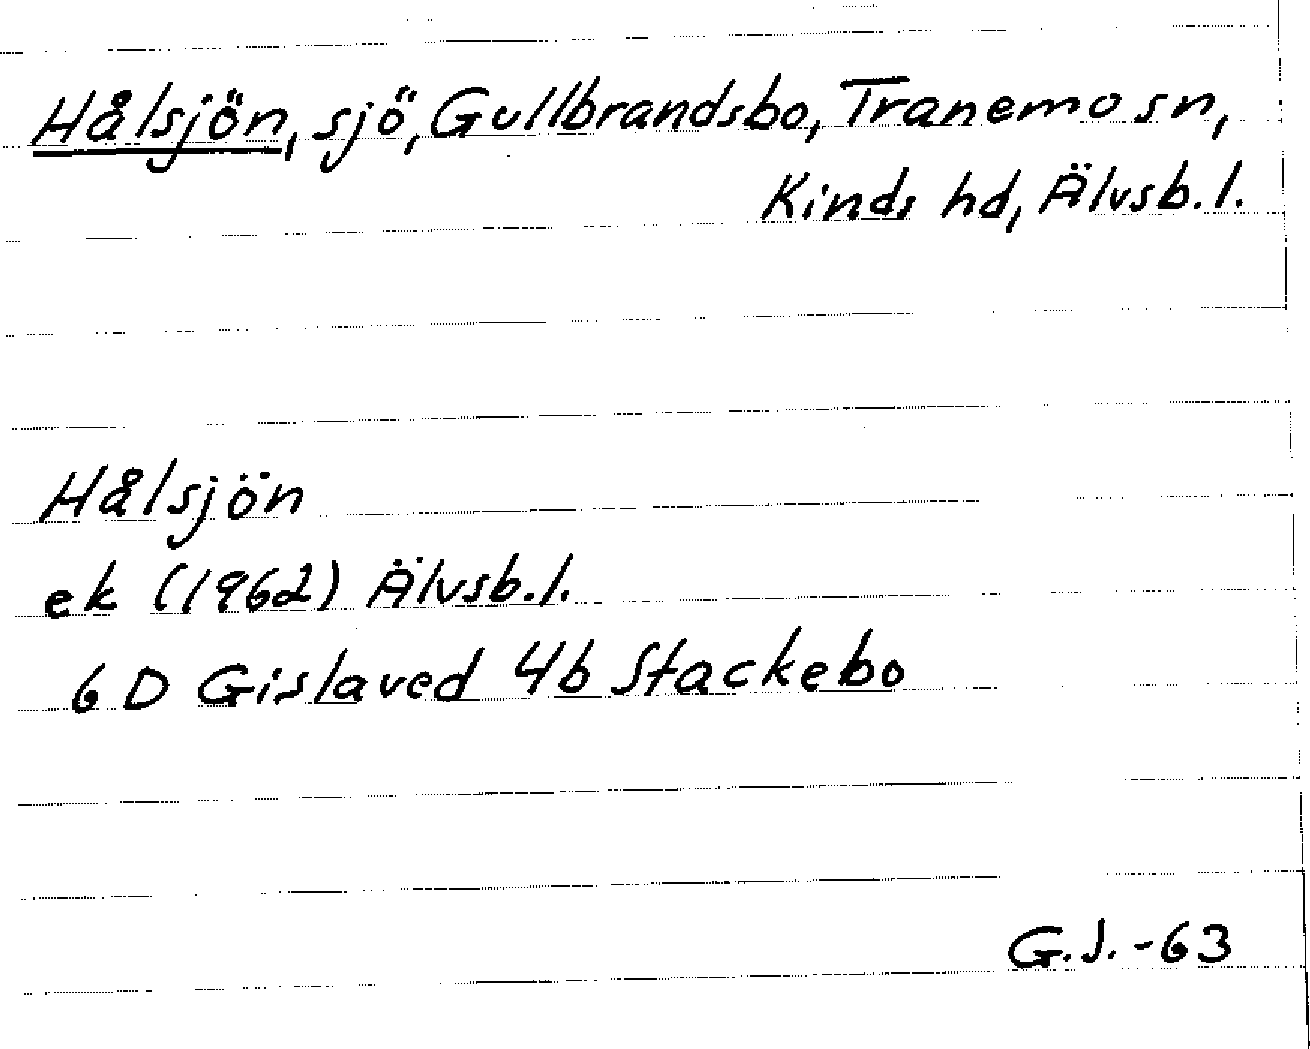 Hålsjön, sjö, Gullbrandsbo, Tranemo sn,
Kinds hd, Älvsb. l.
Hålsjön
ek (1962) Älvsb. l.
6 D Gislaved 4b Stackebo
G.J. -63